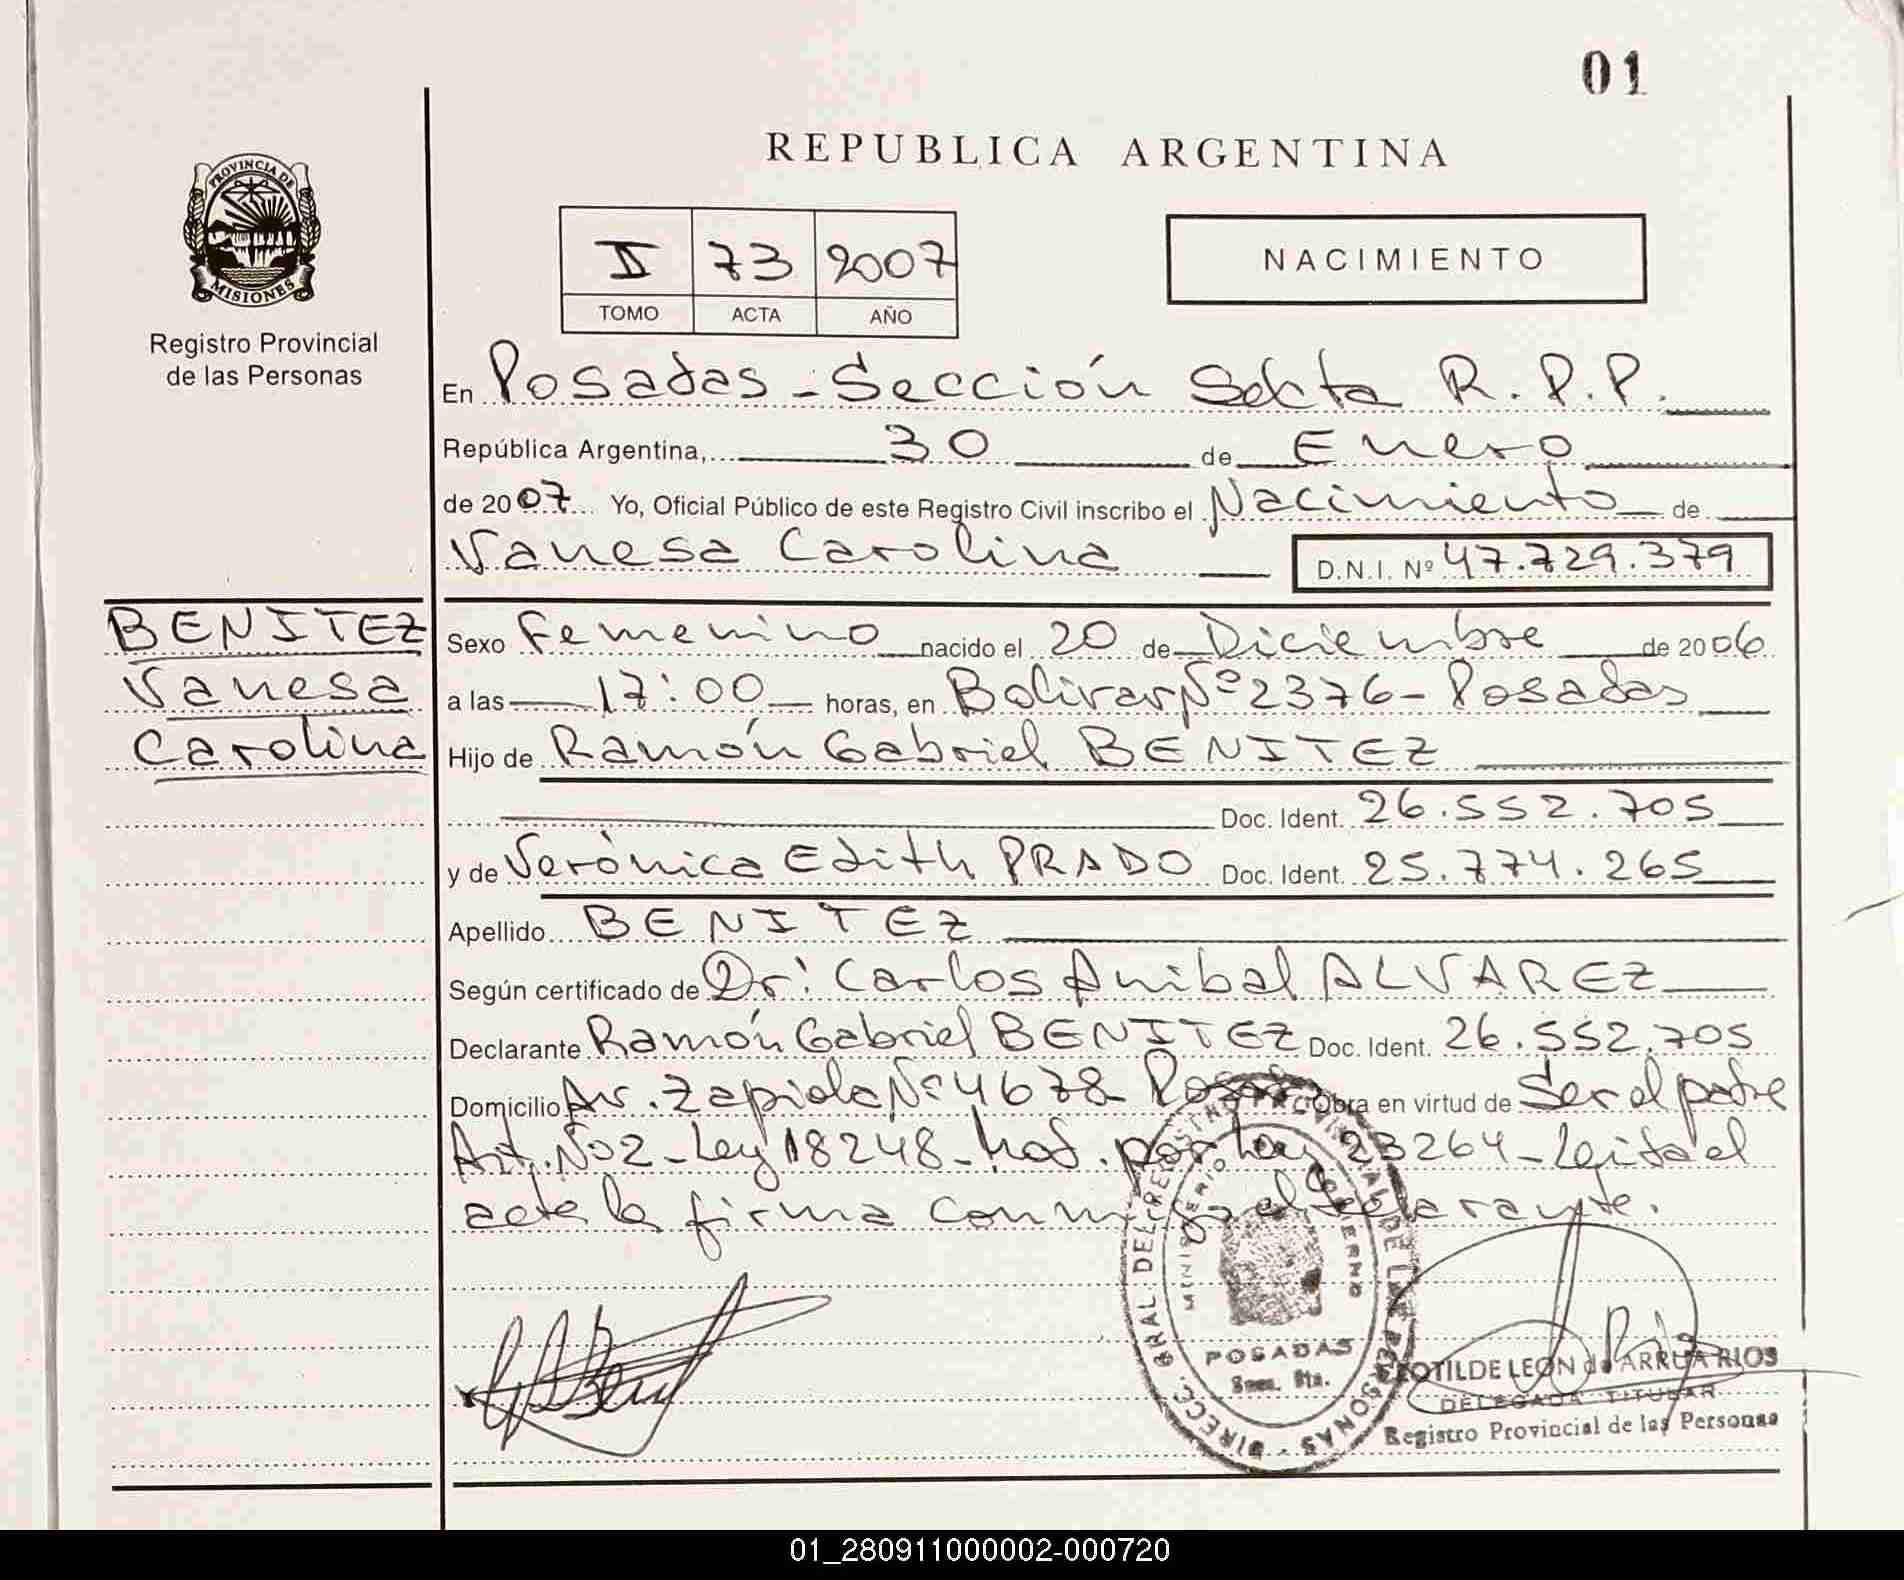 01
REPUBLICA ARGENTINA
PROVINCIA DE
MISIONES
Registro Provincial
de las Personas
II 73 2007
TOMO ACTA AÑO
NACIMIENTO
En Posadas - Sección Sexta R.P.P.
República Argentina, 30 de Enero
de 2007 Yo, Oficial Público de este Registro Civil inscribo el Nacimiento de
Vanesa Carolina D.N.I. Nº 47.729.379
BENITEZ
Vanesa
Carolina
Sexo Femenino nacido el 20 de Diciembre de 2006
a las 17:00 horas, en Bolivar Nº 2376 - Posadas
Hijo de Ramón Gabriel BENITEZ
Doc. Ident. 26.552.705
y de Verónica Edith PRADO Doc. Ident. 25.774.265
Apellido BENITEZ
Según certificado de Dr: Carlos Anibal ALVAREZ
Declarante Ramón Gabriel BENITEZ Doc. Ident. 26.552.705
Domicilio Av. Zapiola Nº 4678 Obra en virtud de Ser el padre
Art. Nº 2 - Ley 18248 - Mod. por Ley 23264 - Leida el
acta la firma conmigo el declarante.
DIREC. GRAL. DEL REGISTRO PROVINCIAL DE LAS PERSONAS
MINISTERIO DE GOBIERNO
POSADAS
Secc. 6ta.
CLOTILDE LEON de ARRUA RIOS
DELEGADA TITULAR
Registro Provincial de las Personas
01_280911000002-000720